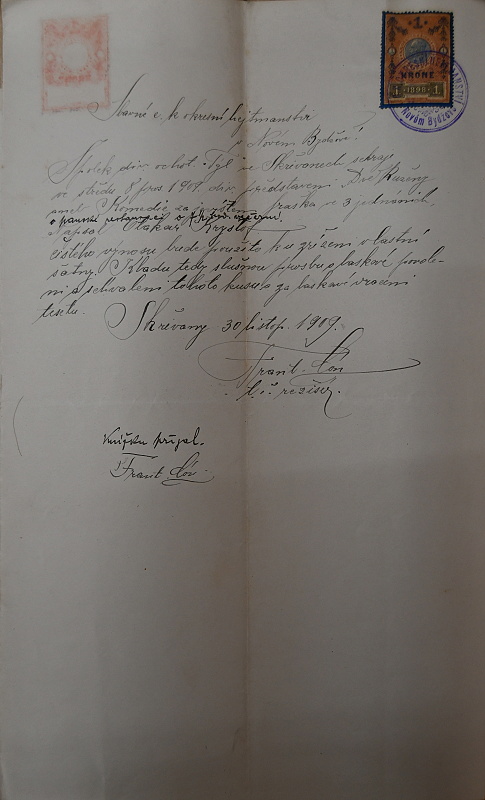 1
KRONE
1 1898 1
Novém Bydžově
Slavné c. k. okresní hejtmanství
v Novém Bydžově!
Spolek div. ochot. „Tyl“ ve Skřivanech sehraje
ve středu 8. pros. 1909. div. představení Dvě
aneb Komedie za fraška o 3 jednáních,
Napsal Otakar
čistého výnosu bude použito ku zřízení vlastní
šatny. Žádá tedy slušnou prosbu o laskavé povole-
ní a schválení tohoto kusu a za laskavé vrácení
textu.
Skřivany 30 listop. 1909.
Frant.
t. č. režisér.
Knížku přijal.
Frant.